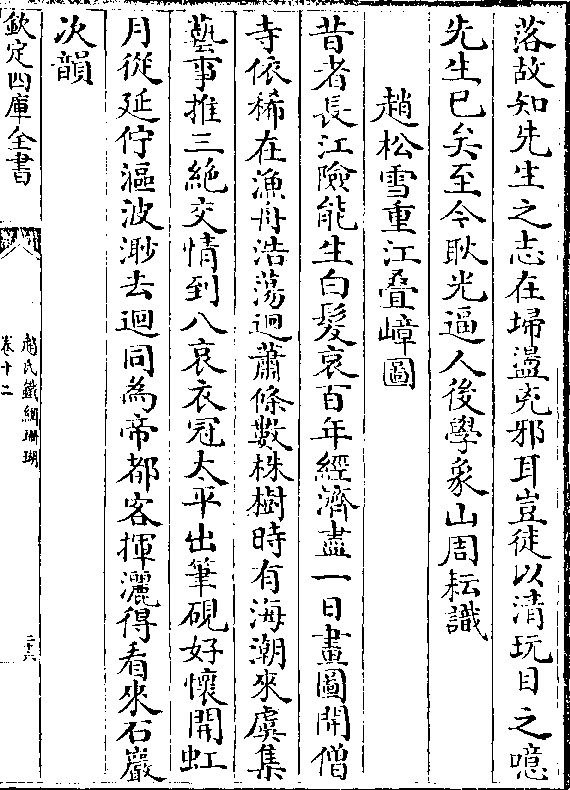 落故知先生之志在埽盪兇邪耳豈徒以清玩目之噫
先生已矣至今耿光逼人後學象山周耘識
趙松雪重江疊嶂圖
昔者長江險能生白髮哀百年經濟盡一日畫圖開僧
寺依稀在漁舟浩蕩迴蕭條數株樹時有海潮來虞集
藝事推三絶交情到八哀衣冠太平出筆硯好懷開虹
月從延佇漚波渺去迴同為帝都客揮灑得看來石巖
次韻
欽定四庫全書
趙氏鐵網珊瑚
卷十二
二十六